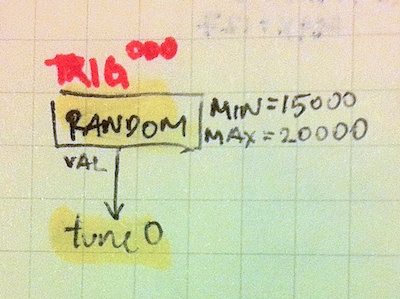 TRIG 000
RANDOM MIN=15000
MAX=20000
VAL
tune 0